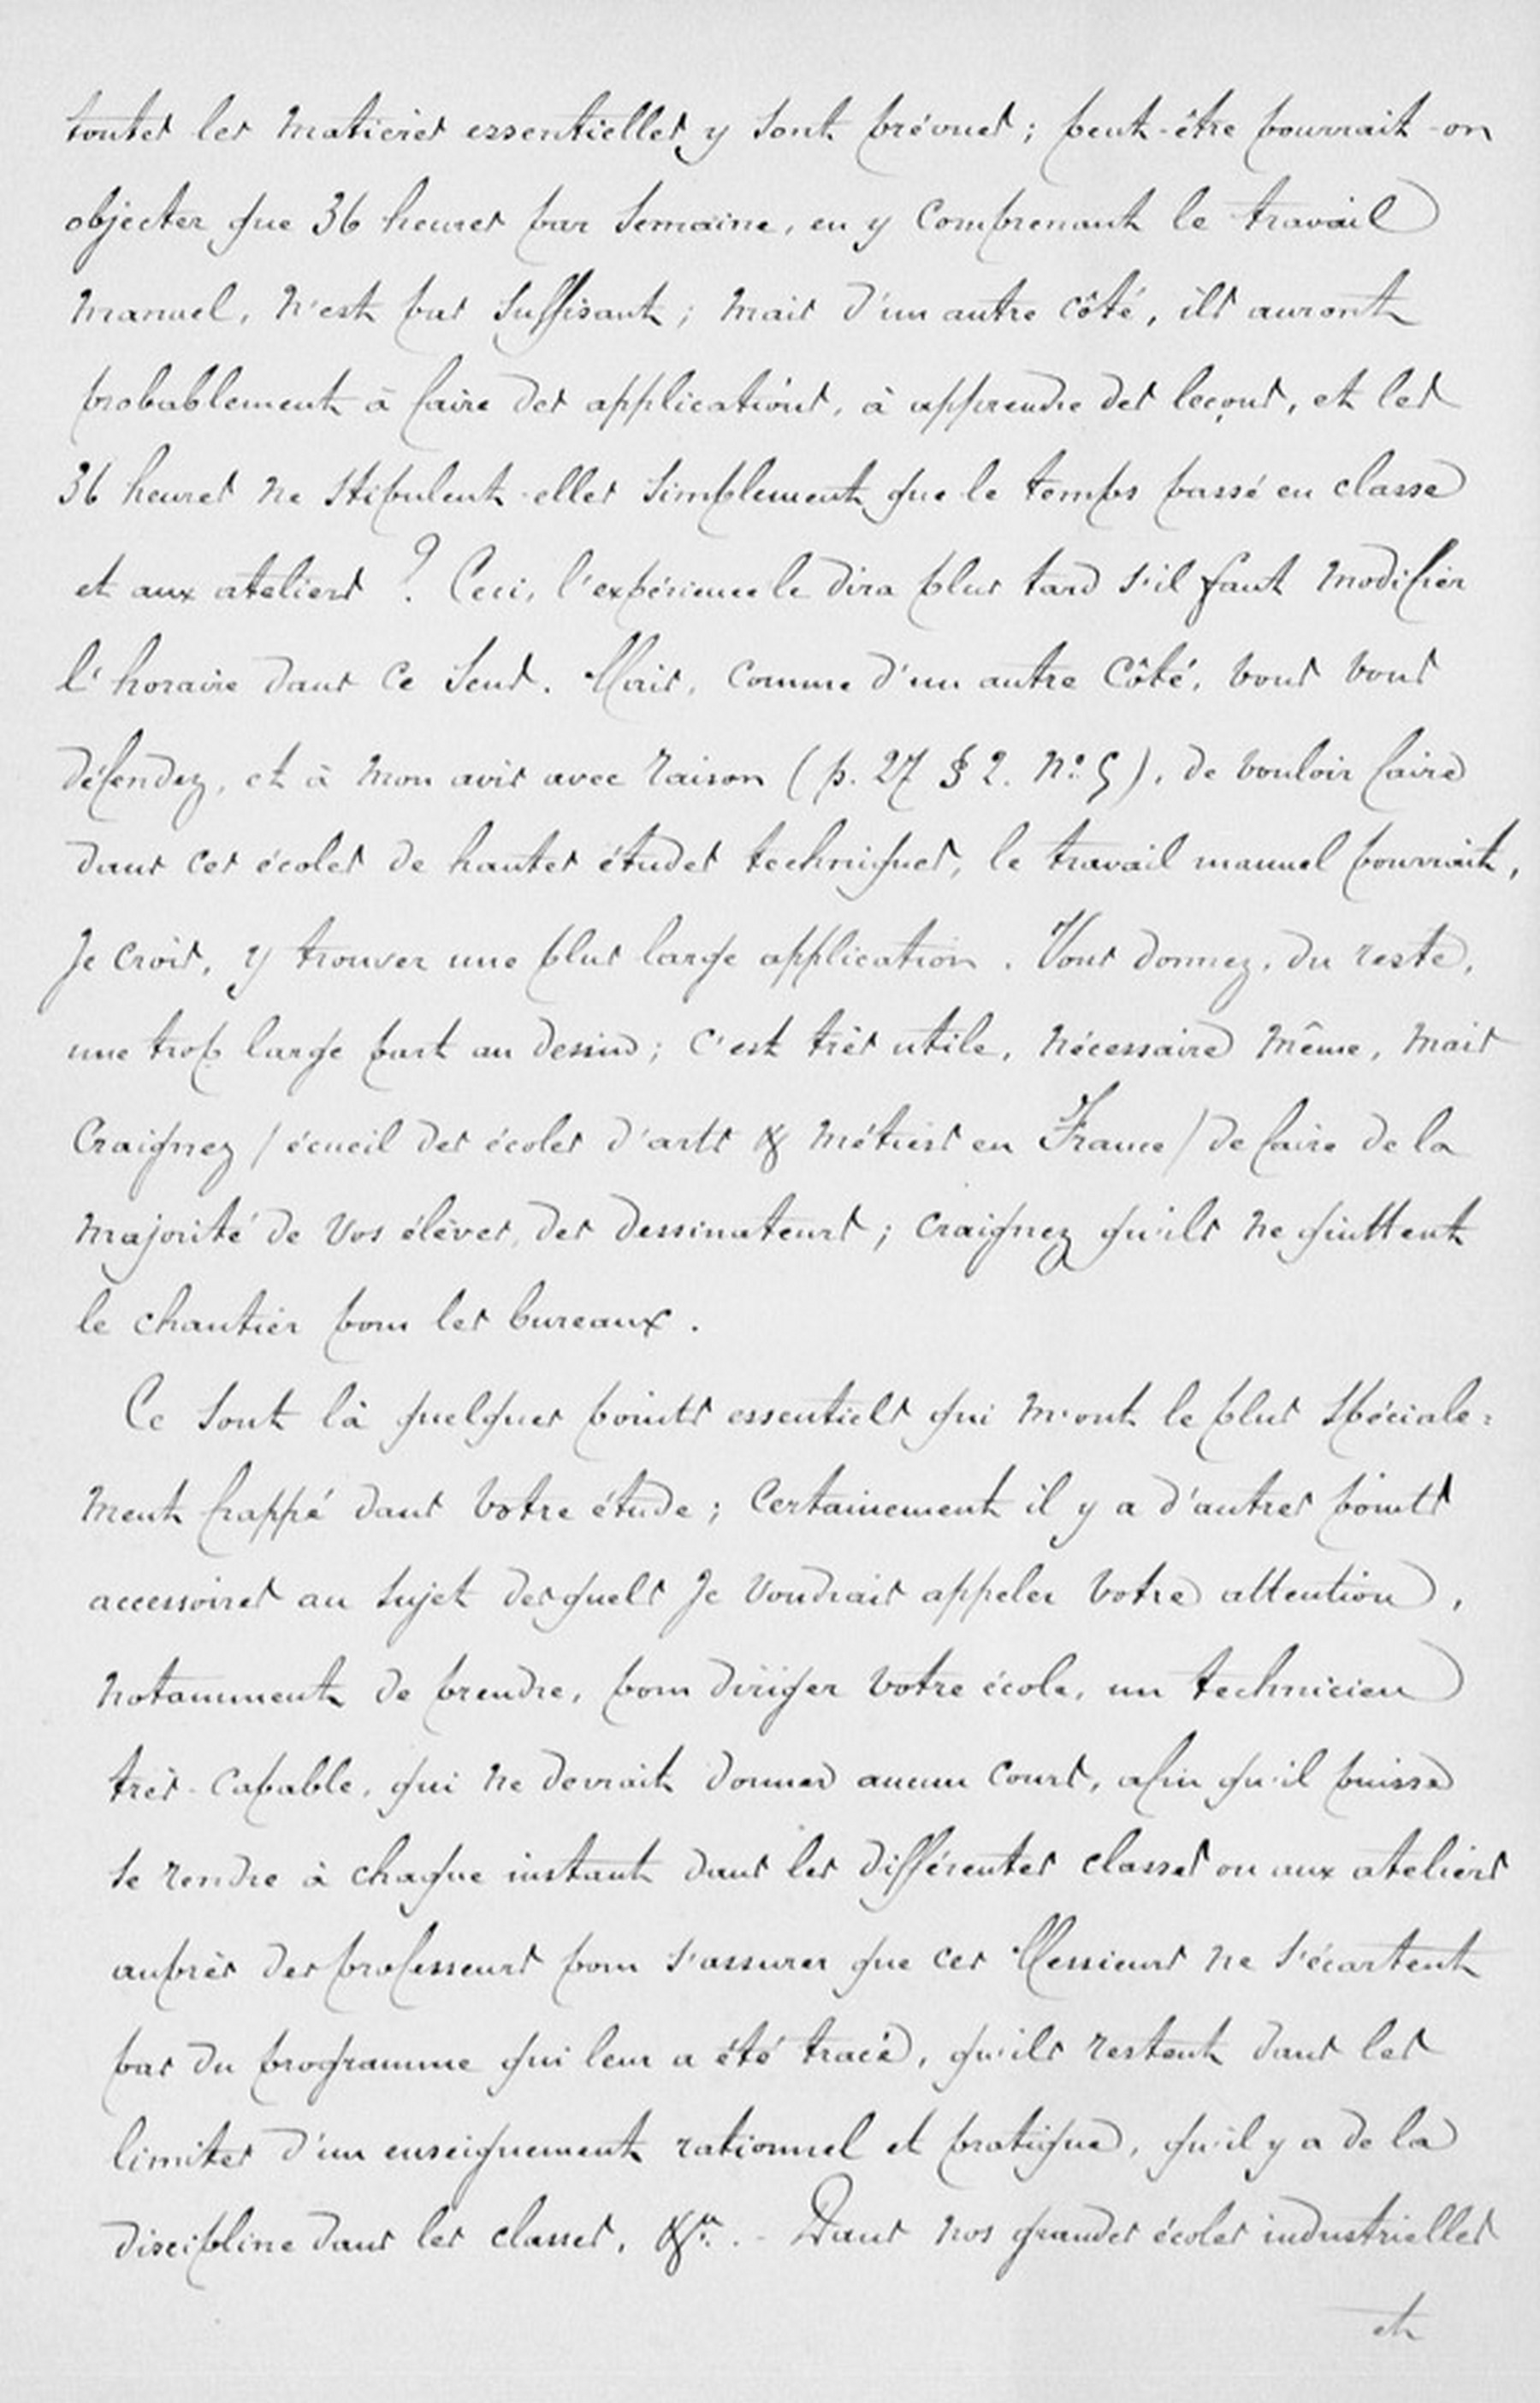 toutes les matières essentielles y sont prévues ; peut-être pourrait-on
objecter que 36 heures par semaine, en y comprenant le travail
manuel, n'est pas suffisant ; mais d'un autre côté, ils auront
probablement à faire des applications, à apprendre des leçons, et les
36 heures ne stipulent-elles simplement que le temps passé en classe
et aux ateliers ? Ceci, l'expérience le dira plus tard s'il faut modifier
l'horaire dans ce sens. Mais, comme d'un autre côté, vous vous
défendez, et à mon avis avec raison (p. 27 § 2. No 5), de vouloir faire
dans ces écoles de hautes études techniques, le travail manuel pourrait,
je crois, y trouver une plus large application. Vous donnez, du reste,
une trop large part au dessin ; c'est très utile, nécessaire même, mais
craignez / écueil des écoles d'arts & métiers en France / de faire de la
majorité de vos élèves, des dessinateurs ; craignez qu'ils ne quittent
le chantier pour les bureaux.
Ce sont là quelques points essentiels qui m'ont le plus spéciale=
ment frappé dans votre étude ; certainement il y a d'autres points
accessoires au sujet desquels je voudrais appeler votre attention,
notamment de prendre, pour diriger votre école, un technicien
très-capable, qui ne devrait donner aucun cours, afin qu'il puisse
se rendre à chaque instant dans les différentes classes ou aux ateliers
auprès des professeurs pour s'assurer que ces Messieurs ne s'écartent
pas du programme qui leur a été tracé, qu'ils restent dans les
limites d'un enseignement rationnel et pratique, qu'il y a de la
discipline dans les classes, &a. - Dans nos grandes écoles industrielles
et